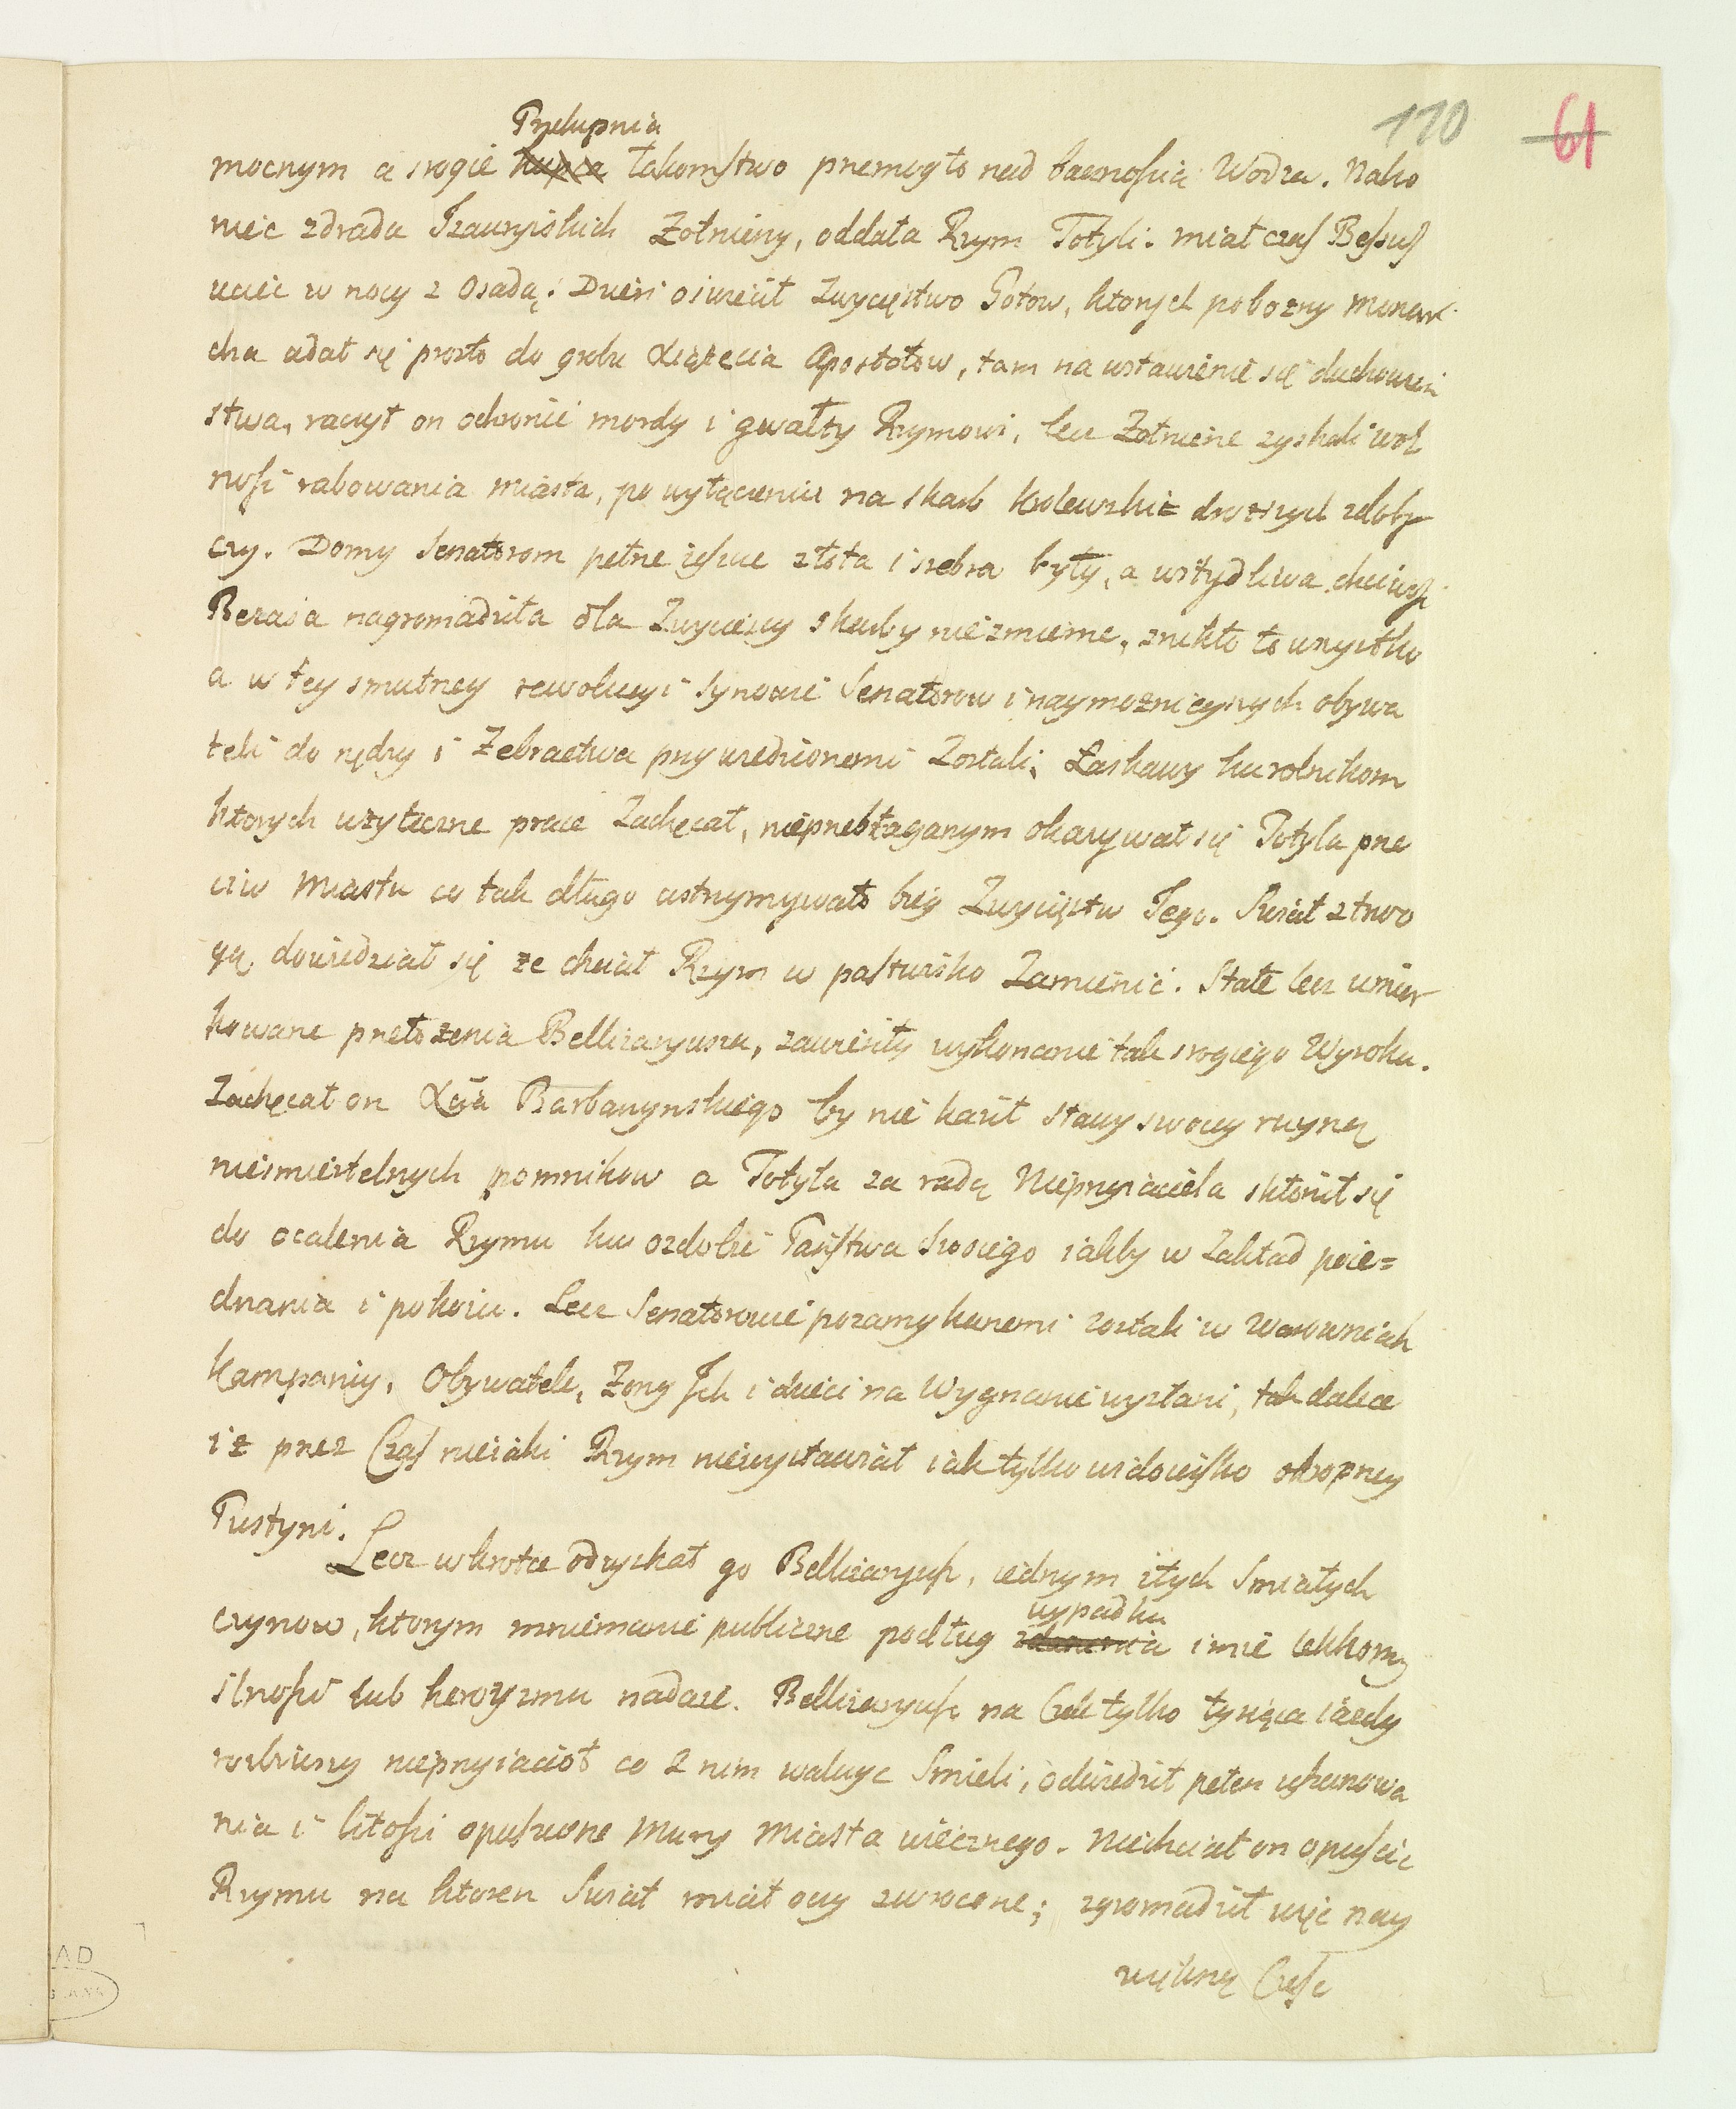 110 61
Przekupnia
mocnym a srogie kupca łakomstwo przemogło nad bacznością Wodza. Nako
niec zdrada Izauryiskich Żołnierzy, oddała Rzym Totyli. miał czas Bessus
uciec w nocy z Osadą. Dzień oswiecił Zwycięstwo Gotow, ktorych pobozny Monar
cha udał się prosto do grobu Xiążęcia Apostołow, tam na wstawienie się duchowień
stwa, raczył on ochronić mordy i gwałty Rzymowi, lecz Żołnierze zyskali wol
ność rabowania miasta, po wyłączeniu na skarb krolewski droższych zdoby
czy. Domy Senatorom pełne ieszcze złota i srebra były, a wstydliwa chciwość
Bezasa nagromadziła dla Zwycięzcy skarby niezmierne, znikło to wszystko
a w tey smutney rewolucyi synowie Senatorow i naymoznieyszych obywa
teli do nędzy i Żebractwa przywiedzionemi Zostali. Łaskawy ku rolnikom
ktorych użyteczne prace Zachęcał, nieprzebłaganym okazywał się Totyla prze
ciw Miastu co tak długo wstrzymywało bieg Zwycięstw Jego. Swiat z trwo
gą dowiedział się ze chciał Rzym w pastwisko Zamienić. Stałe lecz umiar
kowane przełożenia Bellizaryusza, zawiesiły wykonanie tak srogiego Wyroku.
Zachęcał on Xcia Barbarzynskiego by nie kaził sławy swoiey ruyną
niesmiertelnych pomnikow a Totyla za radą Nieprzyiaciela skłonił się
do ocalenia Rzymu ku ozdobie Państwa swoiego iakby w Zakład poie=
dnania i pokoiu. Lecz Senatorowie pozamykanemi zostali w Warowniach
Kampanij, Obywatele, Żony Ich i dzieci na Wygnanie wysłani, tak dalece
iż przez Czas nieiaki Rzym niewystawiał iak tylko widowisko okropney
Pustyni.
Lecz wkrotce odzyskał go Bellizaryusz, iednym z tych smiałych
wypadku
czynow, ktorym mniemanie publiczne podług zdarzenia imie lekkomy
slności lub heroyzmu nadaie. Bellizaryusz na Czele tylko tysiąca iazdy
rozbiwszy nieprzyiacioł co z nim walczyć Smieli, odwiedził pełen uszanowa
nia i litości opuszczone Mury Miasta wiecznego. Niechciał on opuścić
Rzymu na ktoren Swiat miał oczy zwrocone; zgromadził więc nay
większą Część